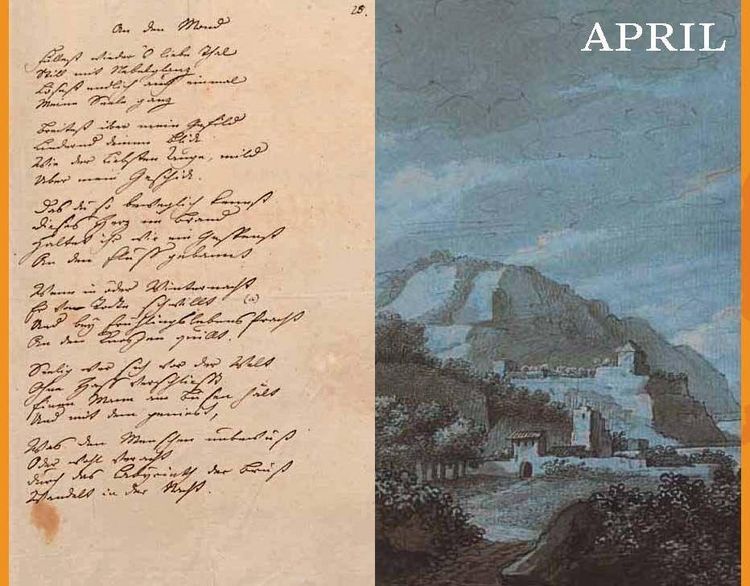 28.
An den Mond
Füllest wieder 's liebe Thal
Still mit Nebelglanz
Lösest endlich auch einmal
Meine Seele ganz
Breitest über mein Gefild
Lindernd deinen Blick
Wie der Liebsten Auge, mild
Über mein Geschick.
Das du so beweglich kennst
Dieses Herz im Brand
Haltet ihr wie ein Gespenst
An den Fluss gebannt
Wenn in öder Winternacht
Er vom Todte schwillt
Und bey Frühlingslebens Pracht
An den Knospen quillt.
Seelig wer sich vor der Welt
Ohne Hass verschließt
Einen Mann am Busen hält
Und mit dem genießt,
Was den Menschen unbewußt
Oder wohl veracht
Durch das Labyrinth der Brust
Wandelt in der Nacht.
APRIL